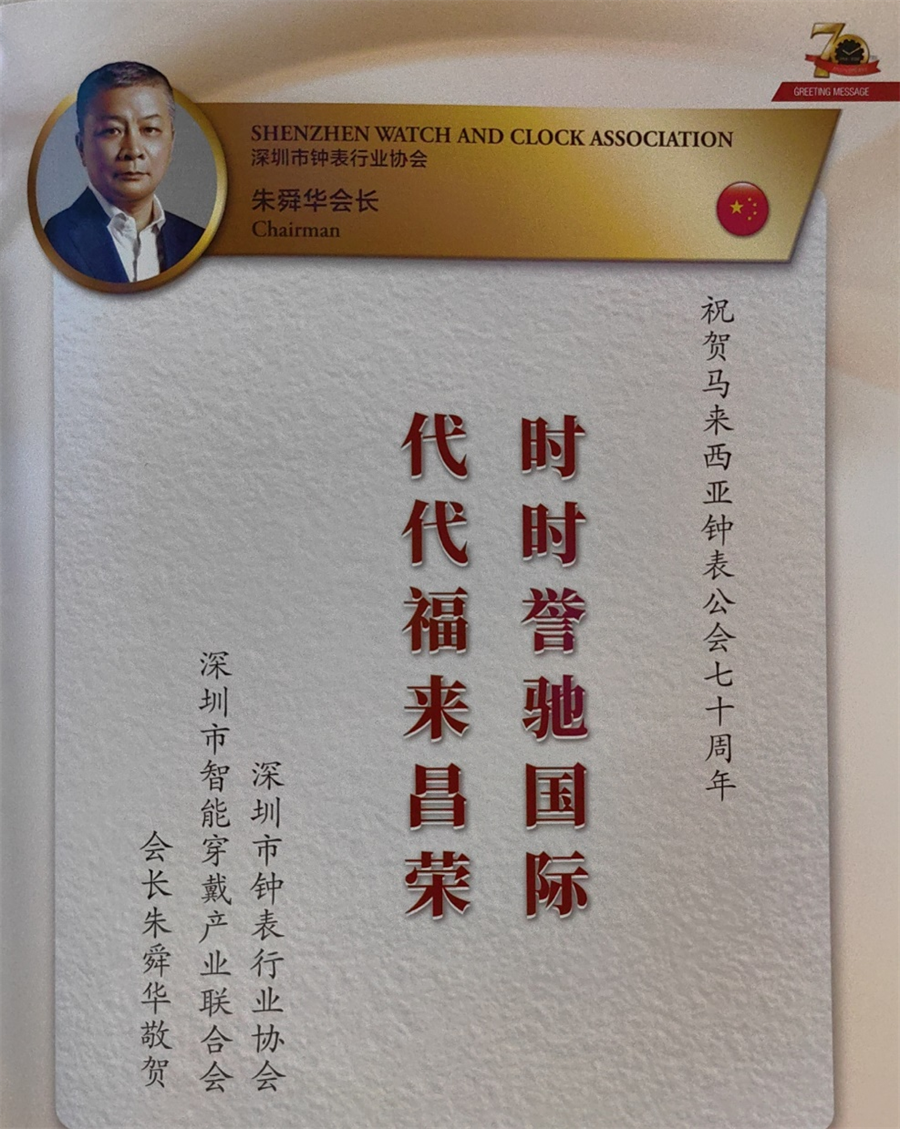 70
GREETING MESSAGE
SHENZHEN WATCH AND CLOCK ASSOCIATION
深圳市钟表行业协会
朱舜华会长
Chairman
祝贺马来西亚钟表公会七十周年
时时誉驰国际
代代福来昌荣
深圳市钟表行业协会
深圳市智能穿戴产业联合会
会长朱舜华敬贺